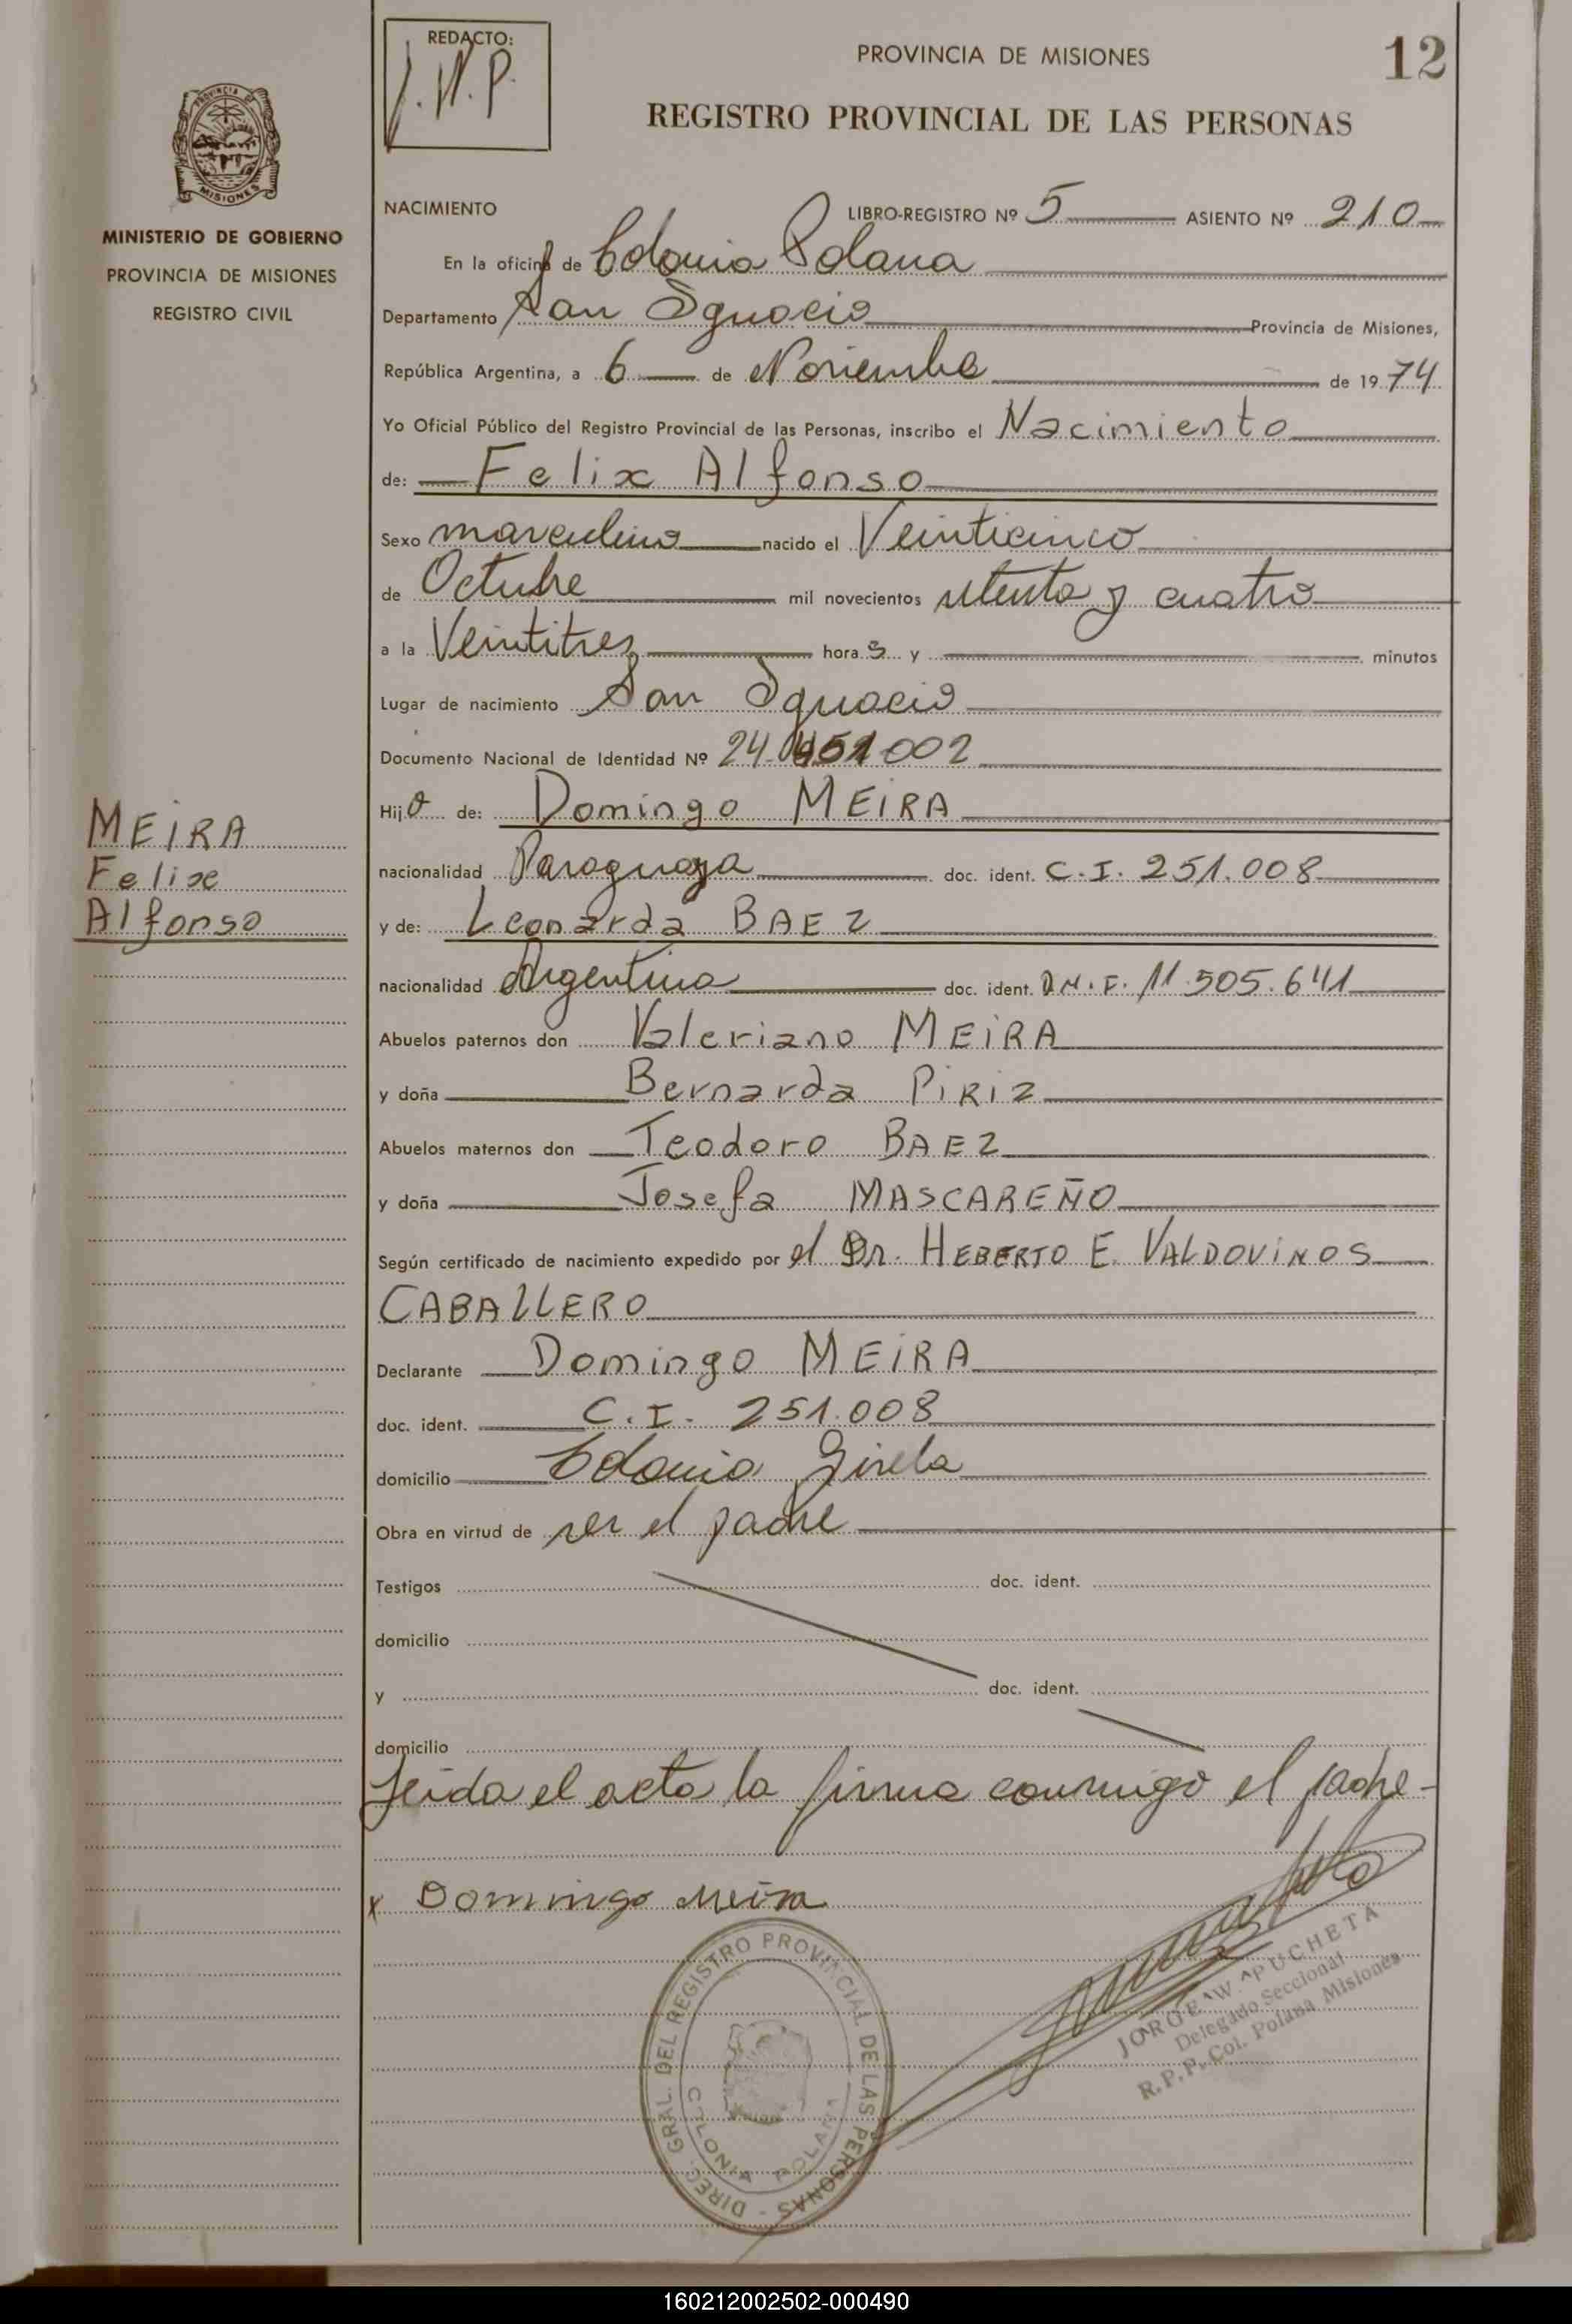 REDACTO:
J.W.P.
PROVINCIA DE MISIONES
12
REGISTRO PROVINCIAL DE LAS PERSONAS
PROVINCIA DE
MISIONES
MINISTERIO DE GOBIERNO
PROVINCIA DE MISIONES
REGISTRO CIVIL
NACIMIENTO LIBRO-REGISTRO Nº 5 ASIENTO Nº 210
En la oficina de Colonia Polana
Departamento San Ignacio Provincia de Misiones,
República Argentina, a 6 de Noviembre de 1974
Yo Oficial Público del Registro Provincial de las Personas, inscribo el Nacimiento
de: Felix Alfonso
Sexo masculino nacido el Veinticinco
de Octubre mil novecientos setenta y cuatro
a la Veintitres hora s y minutos
Lugar de nacimiento San Ignacio
Documento Nacional de Identidad Nº 24. 002
Hijo de: Domingo MEIRA
nacionalidad Paraguaya doc. ident. C.I. 251.008
y de: Leonarda BAEZ
nacionalidad Argentina doc. ident. D.N.I. 11.505.641
Abuelos paternos don Valeriano MEIRA
y doña Bernarda PIRIZ
Abuelos maternos don Teodoro BAEZ
y doña Josefa MASCAREÑO
Según certificado de nacimiento expedido por el Dr. HEBERTO E. VALDOVINOS
CABALLERO
Declarante Domingo MEIRA
doc. ident. C.I. 251.008
domicilio Colonia Gisela
Obra en virtud de ser el padre
Testigos doc. ident.
domicilio
y doc. ident.
domicilio
Leida el acta la firma conmigo el padre-
x Domingo Meira
MEIRA
Felix
Alfonso
DIREC. GRAL. DEL REGISTRO PROVINCIAL DE LAS PERSONAS -
COLONIA POLANA
JORGE W. PUCHETA
Delegado Seccional
R.P.P. Col. Polana Misiones
160212002502-000490